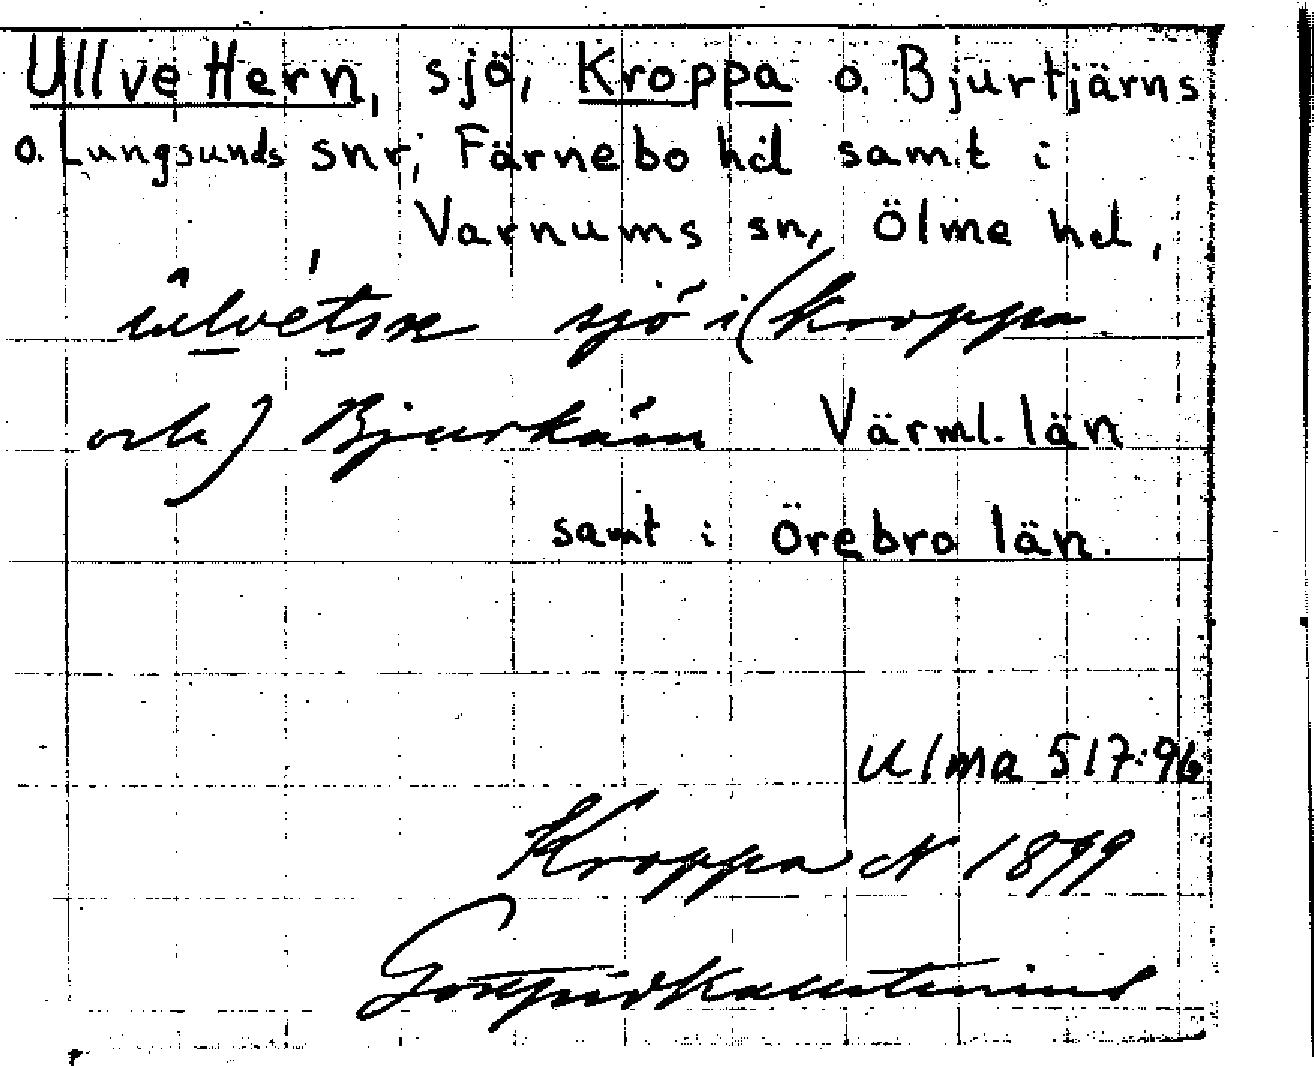 Ullvettern, sjö, Kroppa o. Bjurtjärns
o. Lungsunds snr, Färnebo hd samt i
Varnums sn, Ölme hd,
sjö i (Kroppa
och) Bjurkärn Värml. län
samt i Örebro län.
Ulma 517:96
Kroppa N 1899
Gottfrid Kallstenius